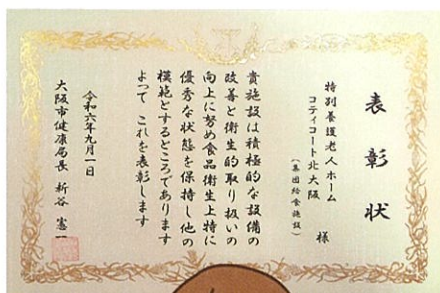 表彰状
特別養護老人ホーム
コティコート北大阪 様
(集団給食施設)
貴施設は積極的な設備の
改善と衛生的取り扱いの
向上に努め食品衛生上特に
優秀な状態を保持し他の
模範とするところであります
よって これを表彰します
令和六年九月一日
大阪市健康局長 新谷 憲一